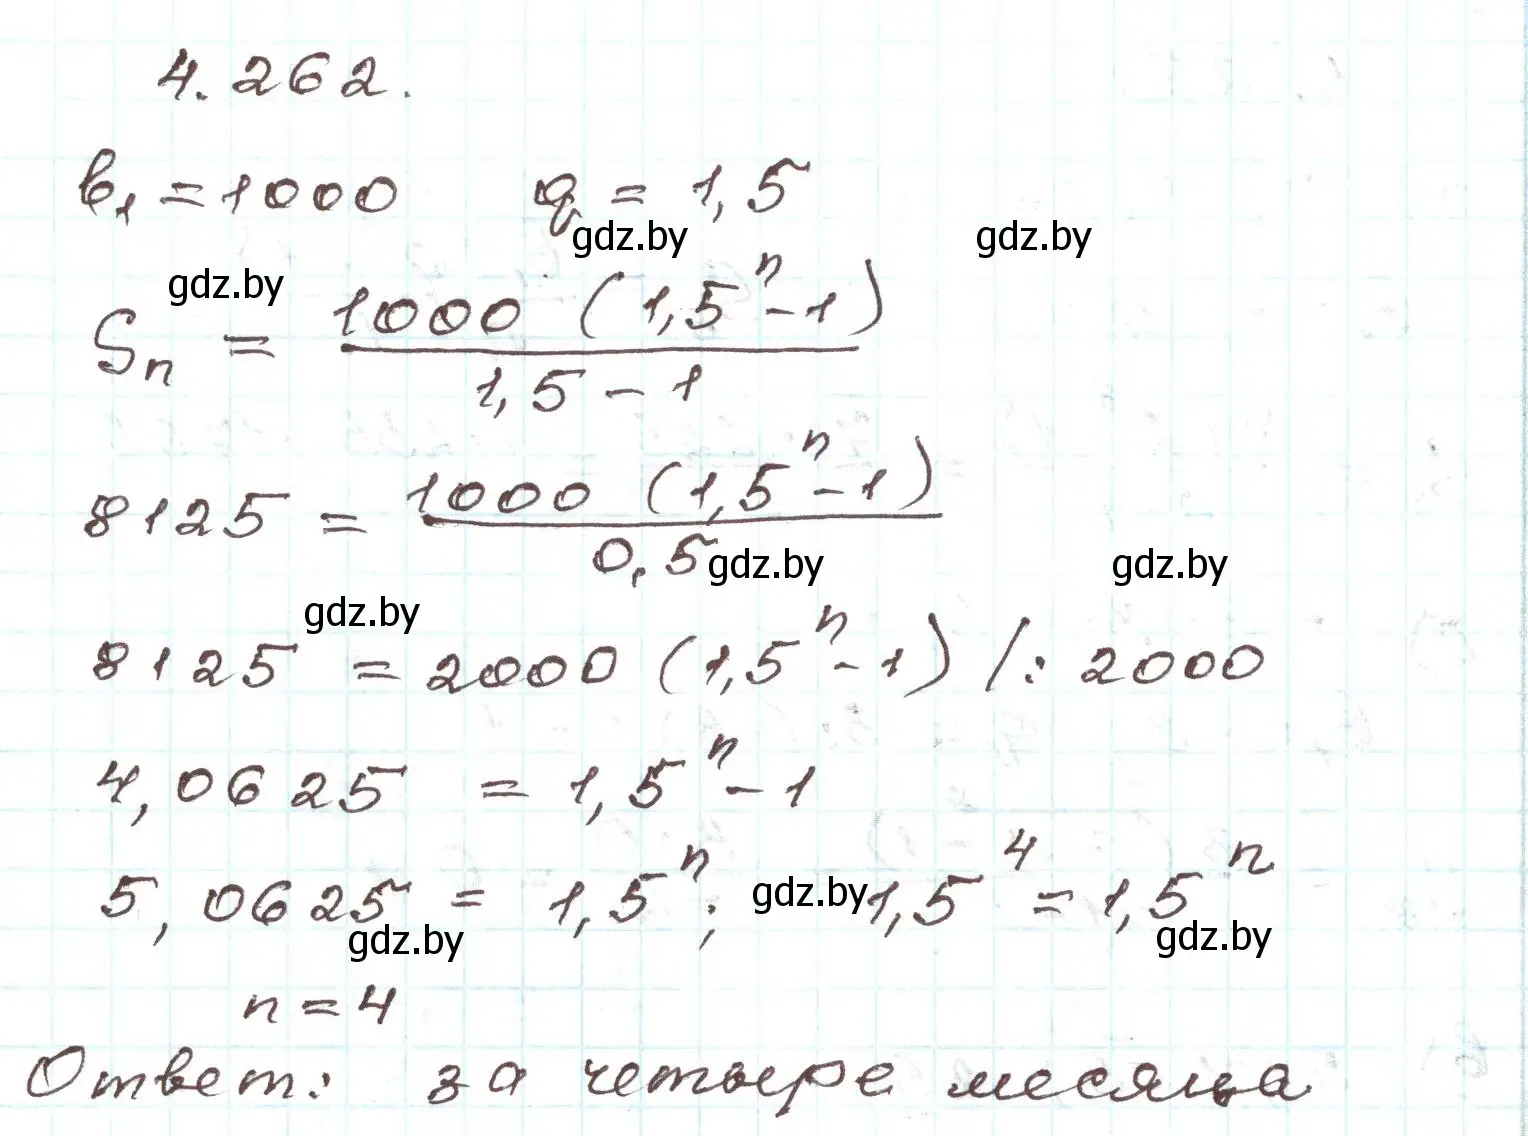 4.262.
b₁ = 1000 q = 1,5
gdz.by gdz.by
gdz.by
Sₙ = 1000 (1,5ⁿ - 1) / 1,5 - 1
8125 = 1000 (1,5ⁿ - 1) / 0,5
gdz.by gdz.by
gdz.by
8125 = 2000 (1,5ⁿ - 1) /: 2000
4,0625 = 1,5ⁿ - 1
5,0625 = 1,5ⁿ; gdz.by 1,5⁴ = 1,5ⁿ
gdz.by gdz.by
n = 4
Ответ: за четыре месяца